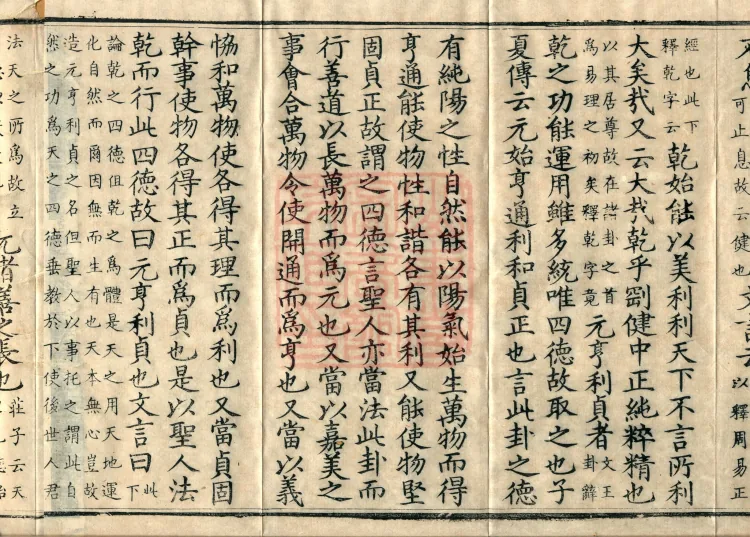 可止息故云健也文言云以釋周易正
經也此下
釋乾字云
乾始能以美利利天下不言所利
大矣㢤又云大㢤乾乎剛健中正純粹精也
以其居尊故在諸卦之首
爲易理之初矣釋乾字竟
元亨利貞者
文王
卦辭
乾之功能運用雖多統唯四德故取之也子
夏傳云元始亨通利和貞正也言此卦之德
有純陽之性自然能以陽氣始生萬物而得
亨通能使物性和諧各有其利又能使物堅
固貞正故謂之四德言聖人亦當法此卦而
行善道以長萬物而爲元也又當以嘉美之
事會合萬物令使開通而爲亨也又當以義
恊和萬物使各得其理而爲利也又當貞固
幹事使物各得其正而爲貞也是以聖人法
乾而行此四德故曰元亨利貞也文言曰
此
下
論乾之四德但乾之爲體是天之用天地運
化自然而爾因無而生有也天本無心豈故
造元亨利貞之名但聖人以事托之謂此自
然之功爲天之四德垂教於下使後世人君
法天之所爲故立
元者善之長也
莊子云天